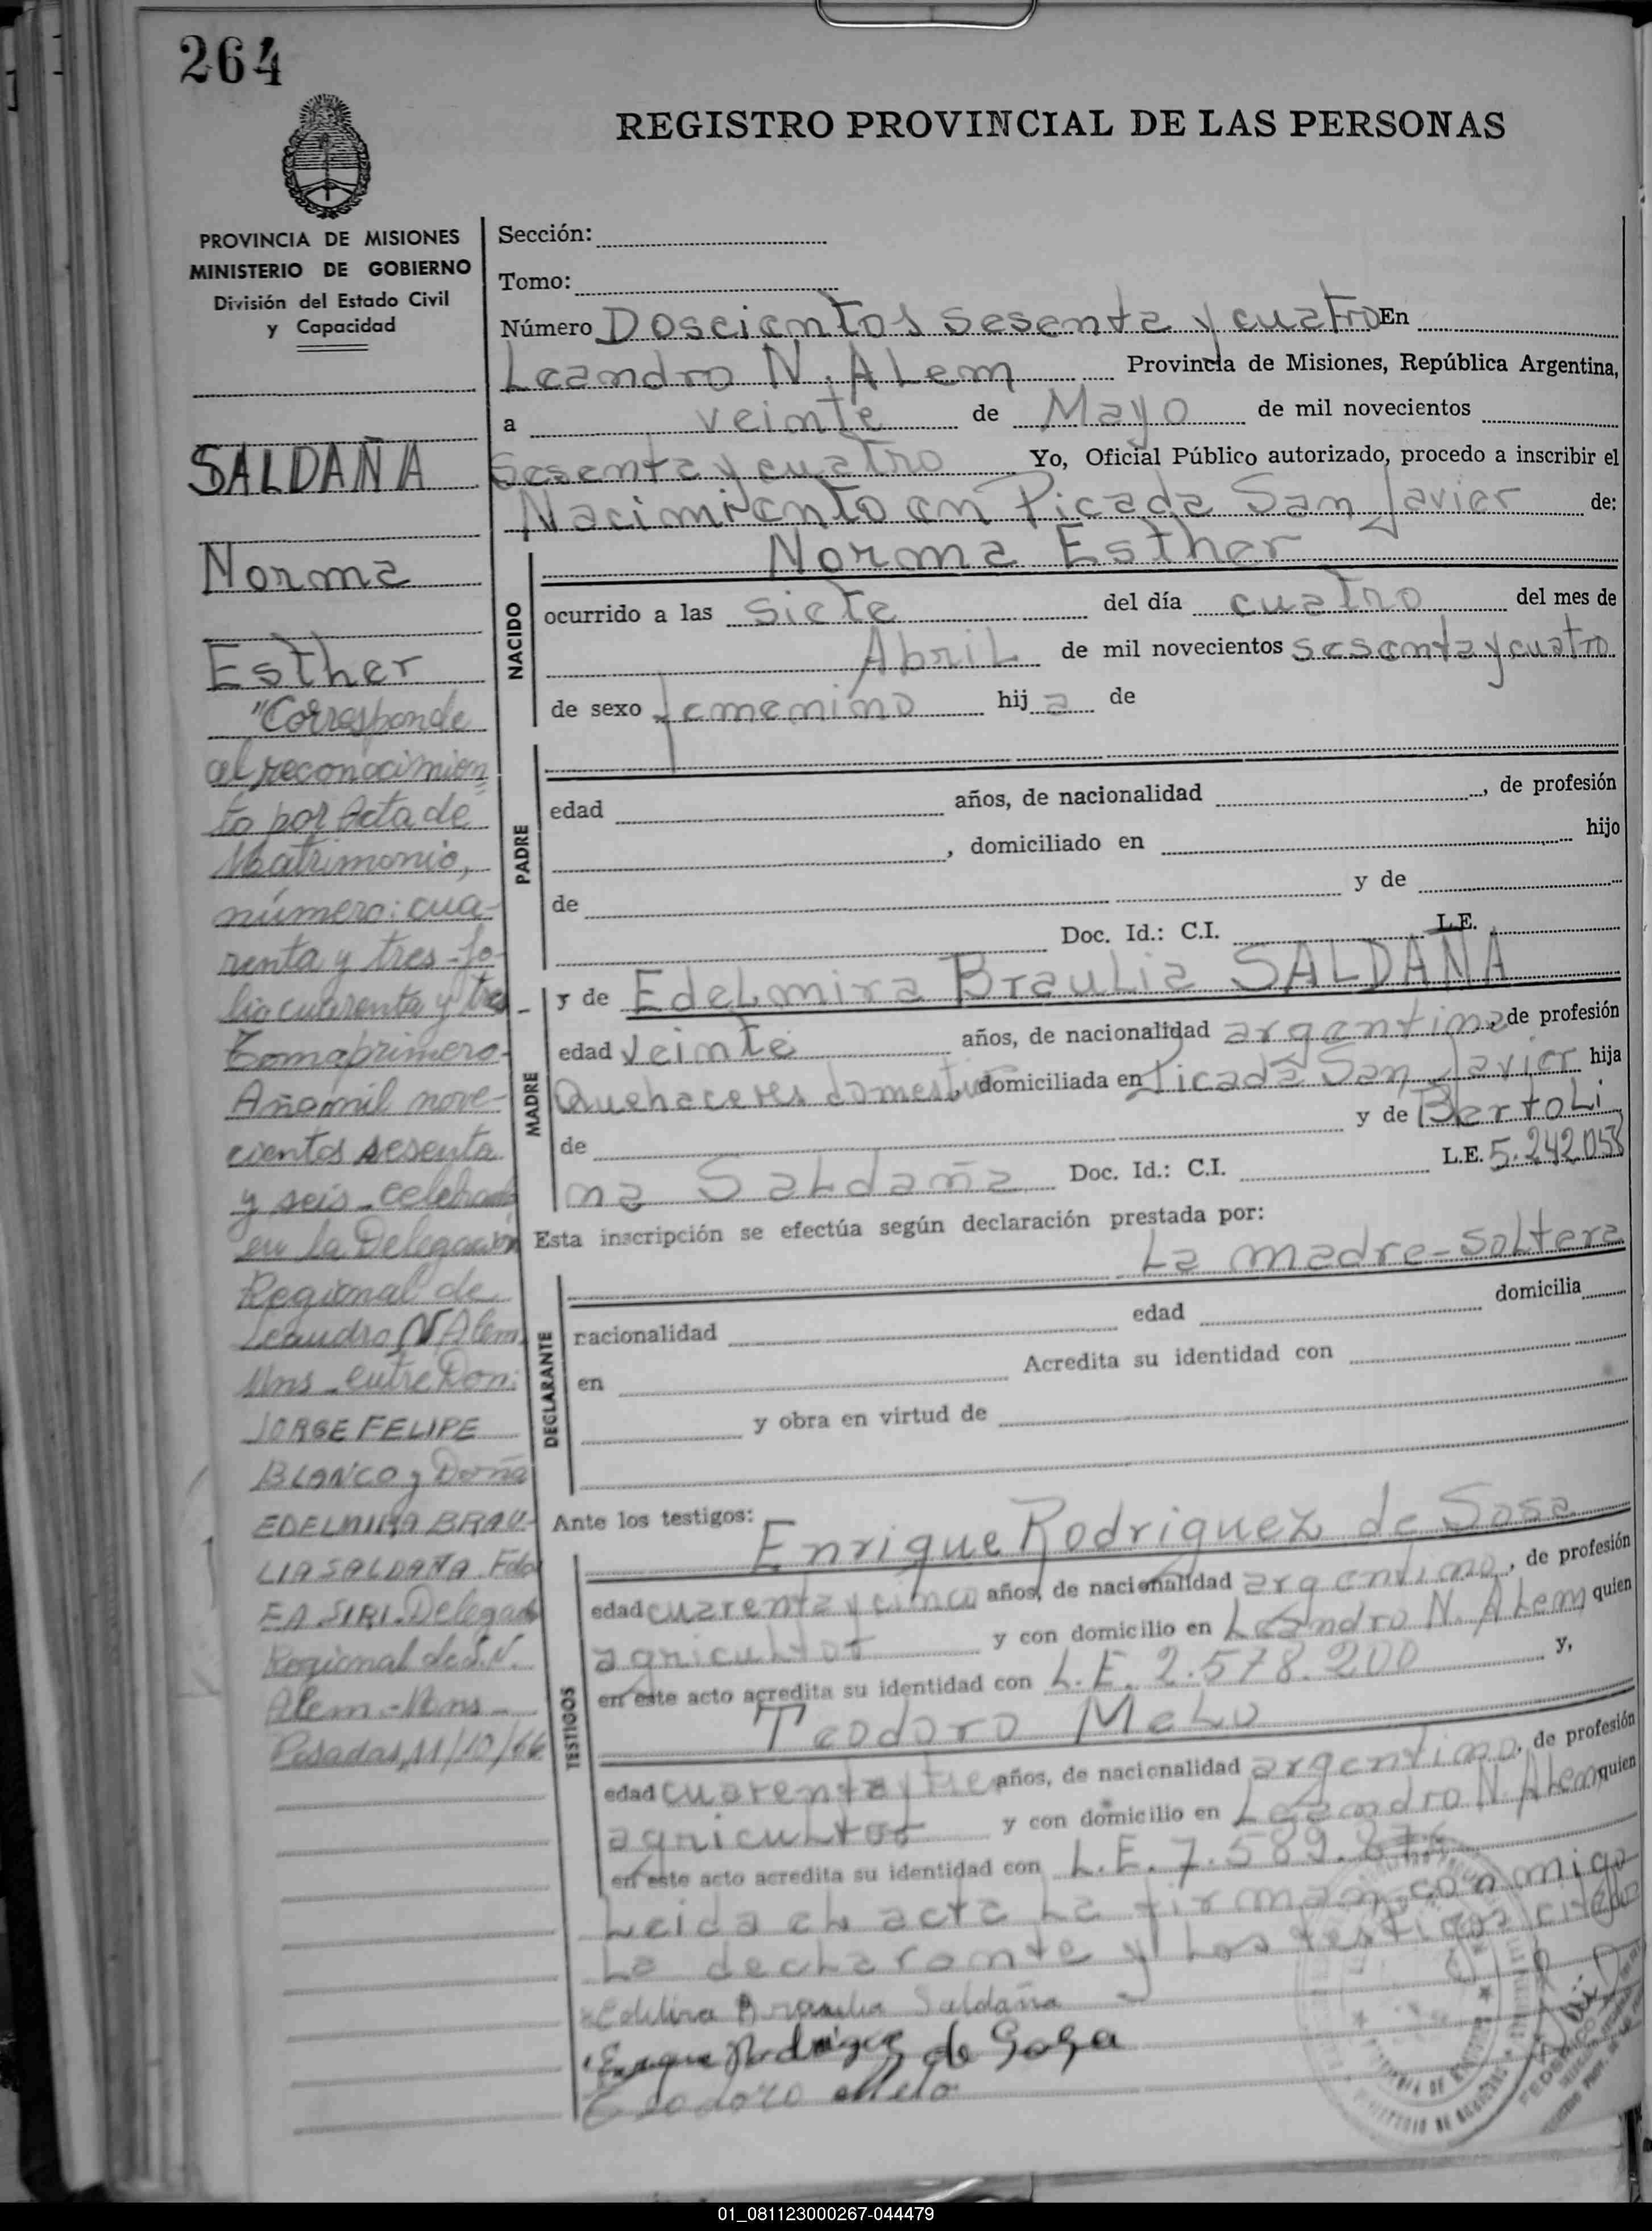 264
REGISTRO PROVINCIAL DE LAS PERSONAS
PROVINCIA DE MISIONES
MINISTERIO DE GOBIERNO
División del Estado Civil
y Capacidad
SALDAÑA
Norma
Esther
"Corresponde
al reconocimien
to por Acta de
Matrimonio,
número: cua-
renta y tres - fo-
lio cuarenta y tres
Tomo primero -
Año mil nove-
cientos sesenta
y seis - celebrado
en la Delegación
Regional de
Leandro N Alem
Mns - entre Don:
JORGE FELIPE
BLANCO y Doña
EDELMIRA BRAU-
LIA SALDAÑA Fdo
EA. SIRI - Delegado
Regional de L.N.
Alem - Mns -
Posadas, 11/10/66
Sección:
Tomo:
Número Doscientos sesenta y cuatro En
Leandro N. Alem Provincia de Misiones, República Argentina,
a veinte de Mayo de mil novecientos
sesenta y cuatro Yo, Oficial Público autorizado, procedo a inscribir el
Nacimiento en Picada San Javier de:
Norma Esther
NACIDO
ocurrido a las siete del día cuatro del mes de
Abril de mil novecientos sesenta y cuatro
de sexo femenino hija de
PADRE
edad años, de nacionalidad , de profesión
, domiciliado en hijo
de y de
Doc. Id.: C.I. L.E.
MADRE
y de Edelmira Braulia SALDAÑA
edad veinte años, de nacionalidad argentina, de profesión
Quehaceres domesticos, domiciliada en Picada San Javier hija
de y de Bertoli
na Saldaña Doc. Id.: C.I. L.E. 5.242.058
Esta inscripción se efectúa según declaración prestada por:
La madre - soltera
DECLARANTE
nacionalidad edad domicilia
en Acredita su identidad con
y obra en virtud de
Ante los testigos:
Enrique Rodriguez de Sosa
TESTIGOS
edad cuarenta y cinco años, de nacionalidad argentino, de profesión
agricultor y con domicilio en Leandro N. Alem quien
en este acto acredita su identidad con L.E. 2.578.200 y,
Teodoro Melo
edad cuarenta y tres años, de nacionalidad argentino, de profesión
agricultor y con domicilio en Leandro N. Alem quien
en este acto acredita su identidad con L.E. 7.589.876
Leida el acta la firman conmigo
la declarante y los testigos citados
Braulia Saldaña
Enrique Rodriguez de Sosa
Teodoro Melo
01_081123000267-044479